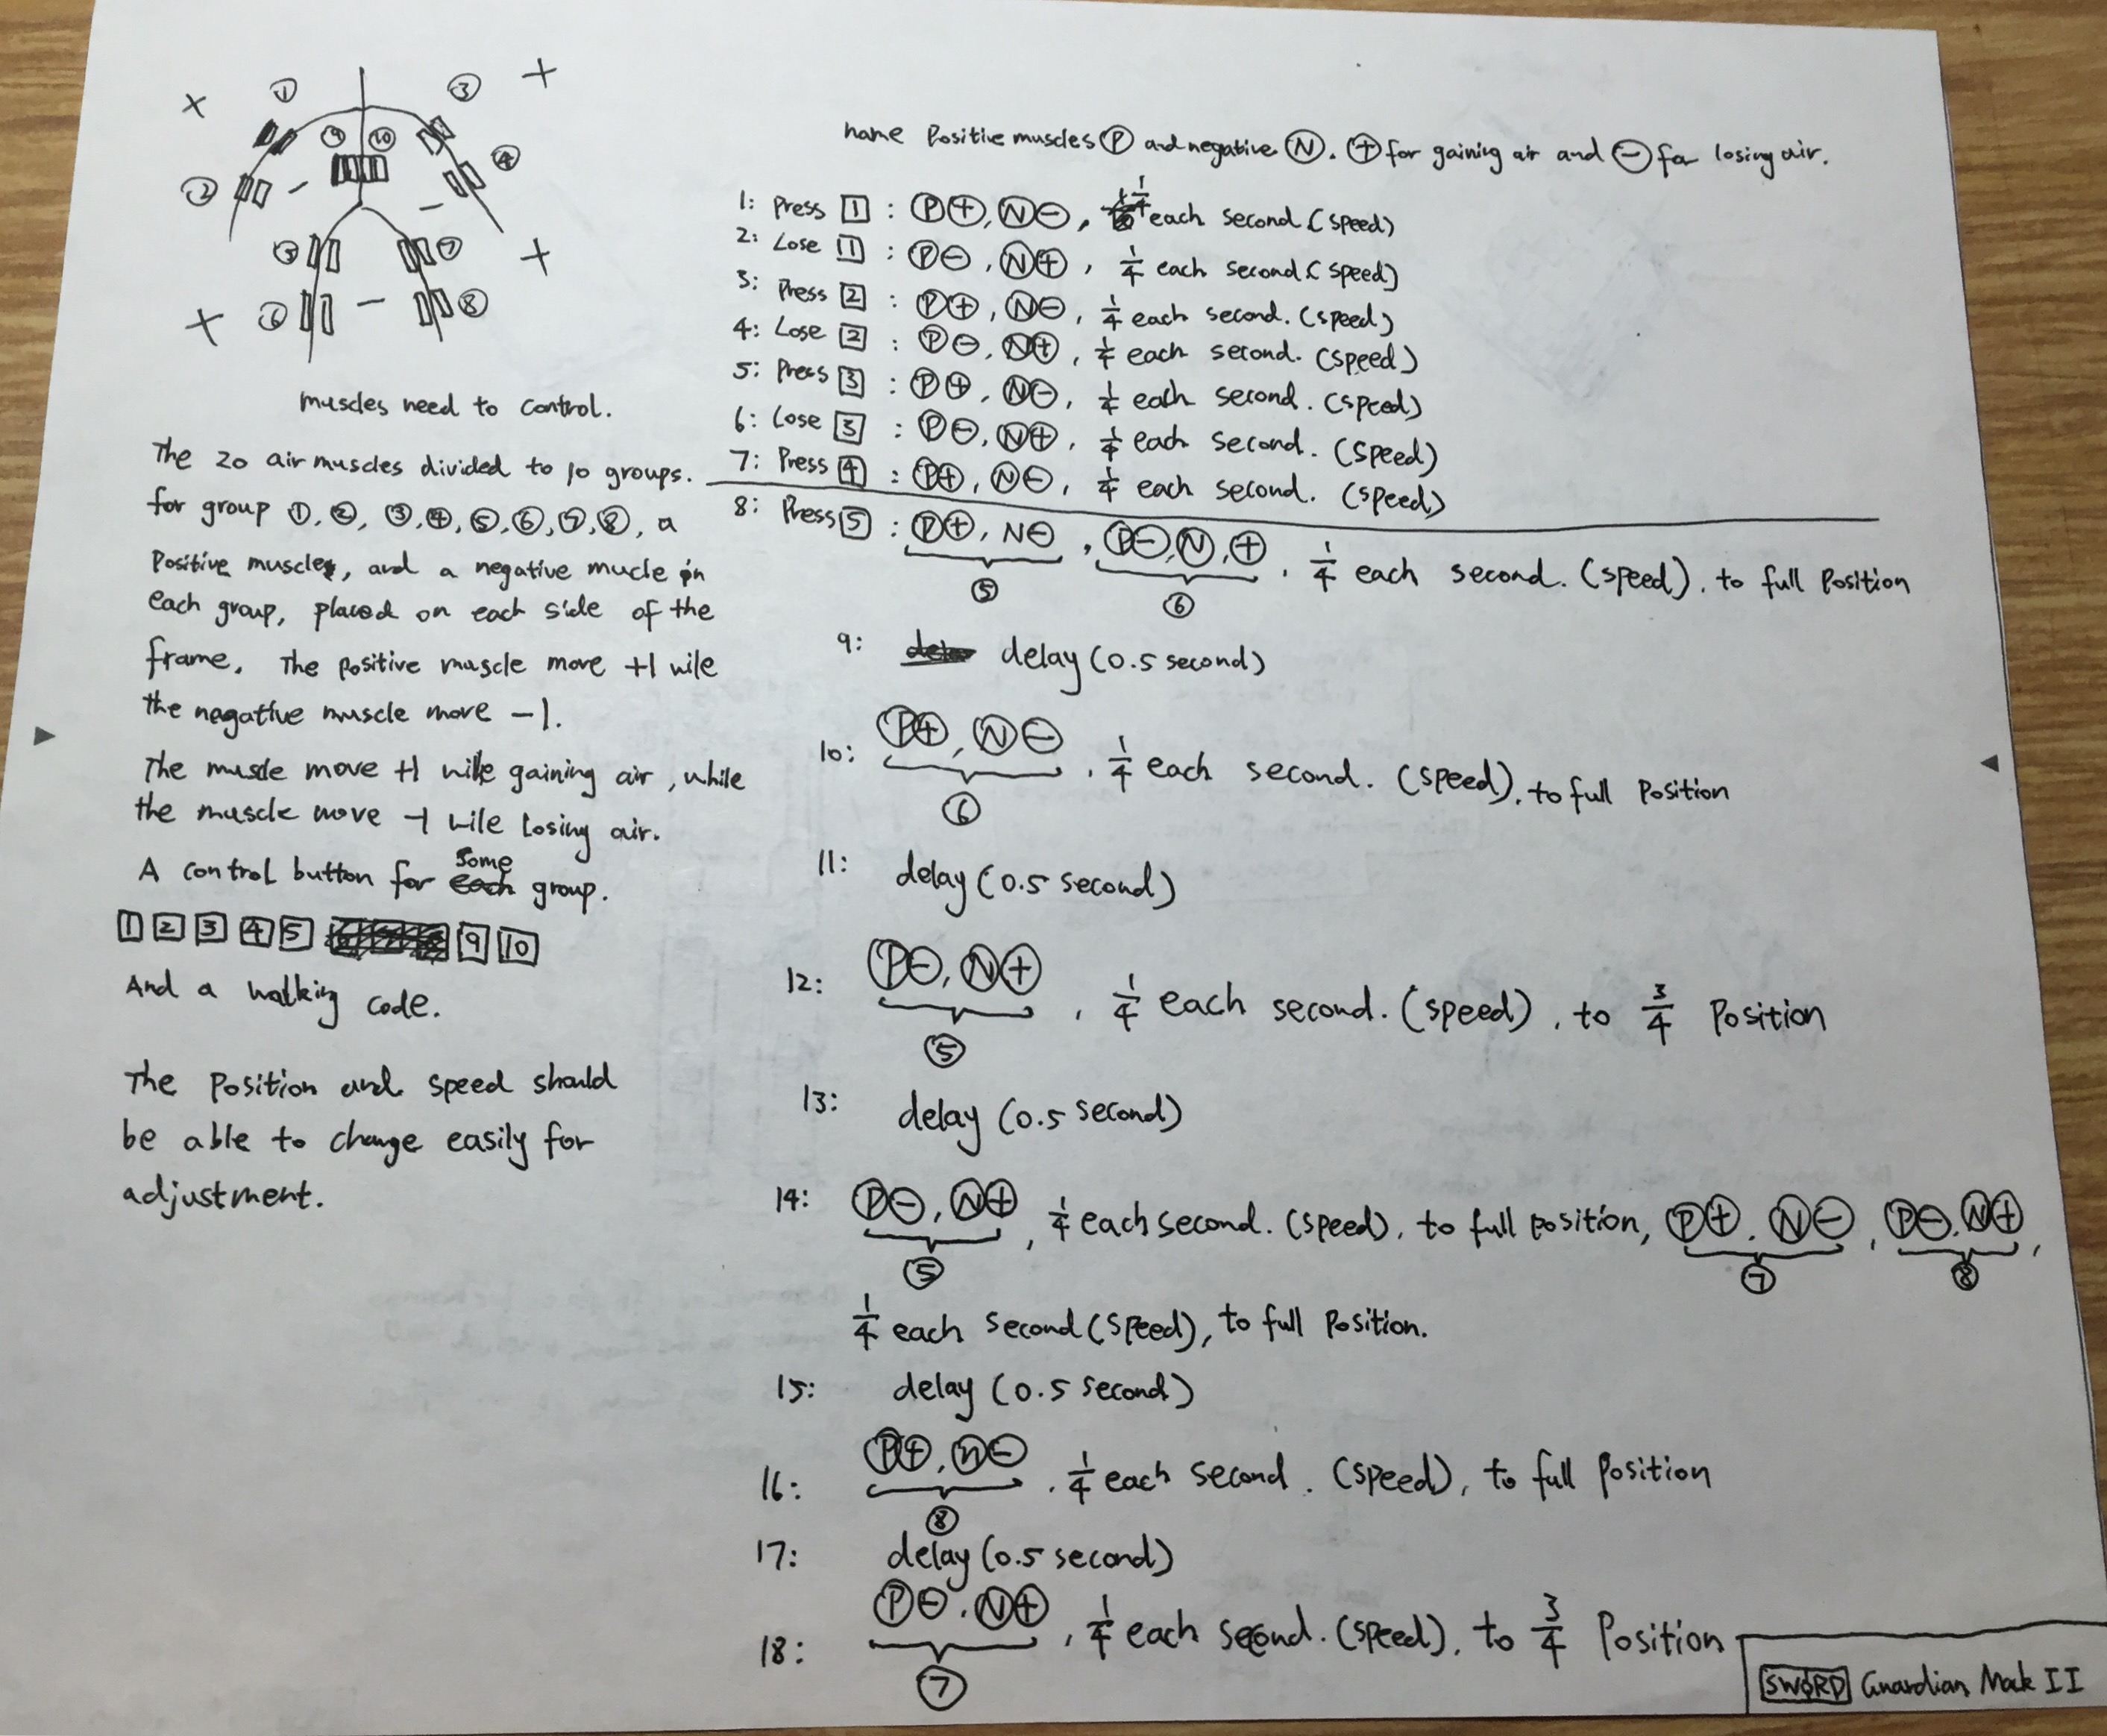 ① ③
⑨ ⑩ ④
②
⑤ ⑦
⑥ ⑧
muscles need to control.
The 20 air muscles divided to 10 groups.
for group ①, ②, ③, ④, ⑤, ⑥, ⑦, ⑧, a
Positive muscles, and a negative mucle in
each group, placed on each side of the
frame. The positive muscle move +1 wile
the negative muscle move -1.
The muscle move +1 wile gaining air, while
the muscle move -1 wile losing air.
A control button for some group.
1 2 3 4 5 9 10
And a walking code.
The Position and speed should
be able to change easily for
adjustment.
name Positive muscles Ⓟ and negative Ⓝ. ⊕ for gaining air and ⊖ for losing air.
1: Press 1 : Ⓟ⊕, Ⓝ⊖, 1/4 each second.(speed)
2: Lose 1 : Ⓟ⊖, Ⓝ⊕, 1/4 each second.(speed)
3: Press 2 : Ⓟ⊕, Ⓝ⊖, 1/4 each second.(speed)
4: Lose 2 : Ⓟ⊖, Ⓝ⊕, 1/4 each second. (speed)
5: Press 3 : Ⓟ⊕, Ⓝ⊖, 1/4 each second. (speed)
6: Lose 3 : Ⓟ⊖, Ⓝ⊕, 1/4 each second. (speed)
7: Press 4 : Ⓟ⊕, Ⓝ⊖, 1/4 each second. (speed)
8: Press 5 : Ⓟ⊕, N⊖, Ⓟ⊖, Ⓝ, ⊕, 1/4 each second. (speed), to full Position
⑤ ⑥
9: delay (0.5 second)
10: Ⓟ⊕, Ⓝ⊖, 1/4 each second. (speed), to full Position
⑥
11: delay (0.5 second)
12: Ⓟ⊖, Ⓝ⊕, 1/4 each second. (speed), to 3/4 Position
⑤
13: delay (0.5 second)
14: Ⓟ⊖, Ⓝ⊕, 1/4 each second. (speed), to full position, Ⓟ⊕, Ⓝ⊖, Ⓟ⊖, Ⓝ⊕,
⑤ ⑦ ⑧
1/4 each second (speed), to full Position.
15: delay (0.5 second)
16: Ⓟ⊕, ⓝ⊖, 1/4 each second. (speed), to full Position
⑧
17: delay (0.5 second)
18: Ⓟ⊖, Ⓝ⊕, 1/4 each second. (speed), to 3/4 Position
⑦
SWORD Guardian Mack II